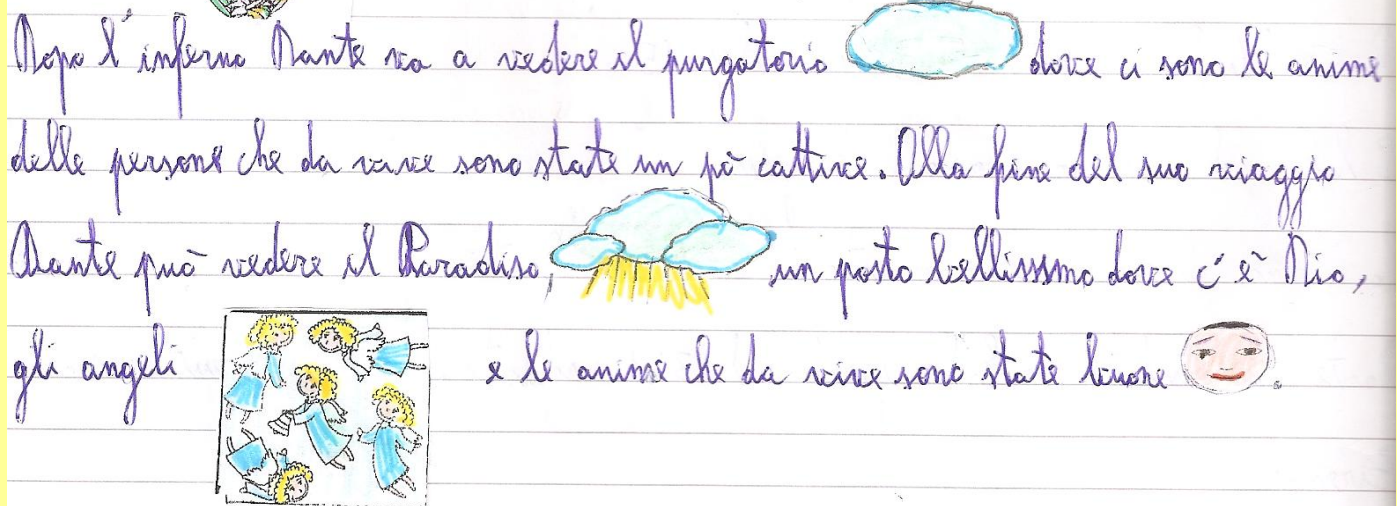 Dopo l'inferno Dante va a vedere il purgatorio dove ci sono le anime
delle persone che da vive sono state un pò cattive. Alla fine del suo viaggio
Dante può vedere il Paradiso, un posto bellissimo dove c'è Dio,
gli angeli e le anime che da vive sono state buone.